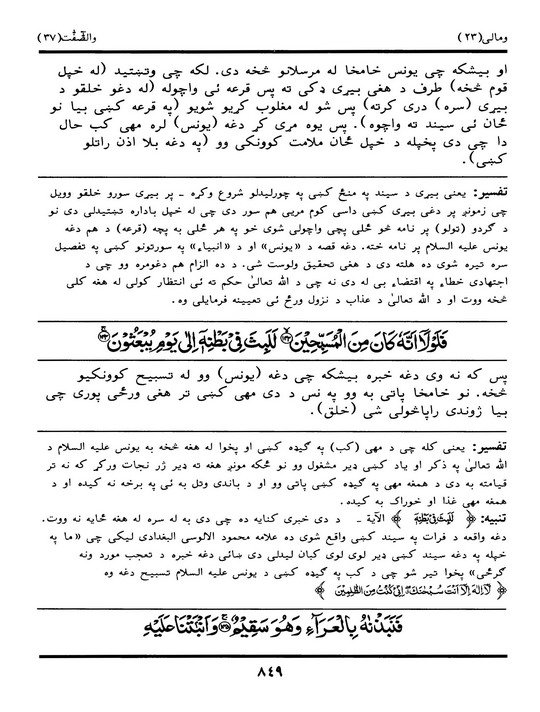 ومالی(۲۳) والصّٰفّٰت(۳۷)
او بیشکه چی یونس خامخا له مرسلانو څخه دی. لکه چی وتښتید (له خپل
قوم څخه) طرف د هغی بیړی ډکی ته پس قرعه ئی واچوله (له دغو خلقو د
بیړی (سره) دری کرته) پس شو له مغلوب کړیو شویو (په قرعه کښی بیا نو
ځان ئی سیند ته واچوه). پس یوه مړی کړ دغه (یونس) لره مهی کب حال
دا چی دی پخپله د خپل ځان ملامت کوونکی وو (په دغه بلا اذن راتلو
کښی).
تفسیر: یعنی بیړی د سیند په منځ کښی په چورلیدلو شروع وکړه ـ پر بیړی سورو خلقو وویل
چی زمونږ پر دغی بیړی کښی داسی کوم مریی هم سور دی چی له خپل باداره تښتیدلی دی نو
د ګردو (ټولو) پر نامه څو ځلی پچی واچولی شوی خو په هر ځلی به پچه (قرعه) د هم دغه
یونس علیه السلام پر نامه خته. دغه قصه د «یونس» او د «انبیاء» په سورتونو کښی په تفصیل
سره تیره شوی ده هلته دی د هغی تحقیق ولوست شی. د ده الزام هم دغومره وو چی د
اجتهادی خطاء په اقتضاء بی له دی نه چی د الله تعالیٰ حکم ته ئی انتظار کولی له هغه کلی
څخه ووت او د الله تعالیٰ د عذاب د نزول ورځ ئی تعیینه فرمایلی وه.
فَلَوْلَآ اَنَّهٗ كَانَ مِنَ الْمُسَبِّحِيْنَ۝۱۴۳ لَلَبِثَ فِيْ بَطْنِهٖٓ اِلٰى يَوْمِ يُبْعَثُوْنَ۝۱۴۴
پس که نه وی دغه خبره بیشکه چی دغه (یونس) وو له تسبیح کوونکیو
څخه. نو خامخا پاتی به وو په نس د دی مهی کښی تر هغی ورځی پوری چی
بیا ژوندی راپاڅولی شی (خلق).
تفسیر: یعنی کله چی د مهی (کب) په ګیډه کښی او پخوا له هغه څخه به یونس علیه السلام د
الله تعالیٰ په ذکر او یاد کښی ډیر مشغول وو نو ځکه مونږ هغه ته ډیر ژر نجات ورکړ که نه تر
قیامته به دی د همغه مهی په ګیډه کښی پاتی وو او د باندی وتل به ئی په برخه نه کیده او د
همغه مهی غذا او خوراک به کیده.
تنبیه: ﴿ لَلَبِثَ فِيْ بَطْنِهٖٓ ﴾ الآیة ـ د دی خبری کنایه ده چی دی به له سره له هغه ځایه نه ووت.
دغه واقعه د فرات په سیند کښی واقع شوی ده علامه محمود الالوسی البغدادی لیکی چی «ما په
خپله په دغه سیند کښی ډیر لوی لوی کبان لیدلی دی ښائی دغه خبره د تعجب مورد ونه
ګرځی» پخوا تیر شو چی د کب په ګیډه کښی د یونس علیه السلام تسبیح دغه وه
﴿ لَآ اِلٰهَ اِلَّآ اَنْتَ سُبْحٰنَكَ ۖ اِنِّيْ كُنْتُ مِنَ الظّٰلِمِيْنَ ﴾
فَنَبَذْنٰهُ بِالْعَرَآءِ وَهُوَ سَقِيْمٌ۝۱۴۵ وَاَنْۢبَتْنَا عَلَيْهِ
٨٤٩